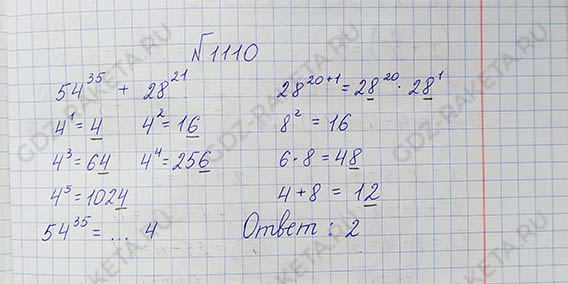 №1110
54³⁵ + 28²¹
4¹ = 4 4² = 16
4³ = 64 4⁴ = 256
4⁵ = 1024
54³⁵ = ... 4
28²⁰⁺¹ = 28²⁰ · 28¹
8² = 16
6 · 8 = 48
4 + 8 = 12
Ответ: 2
GDZ-RAKETA.RU